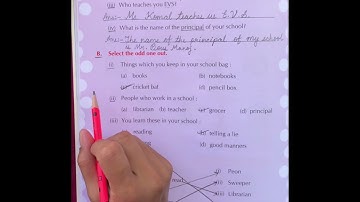 (iii) Who teaches you EVS?
Ans:- Ms Komal teaches us E.V.S.
(iv) What is the name of the principal of your school?
Ans:- The name of the principal of my school
is Ms.
B. Select the odd one out.
(i) Things which you keep in your school bag
(a) books (b) notebooks
cricket bat (d) pencil box
(ii) People who work in a school :
(a) librarian (b) teacher grocer (d) principal
(iii) You learn these in your school :
reading telling a lie
(d) good manners
read. (i) Peon
(ii) Sweeper
(iii) Librarian